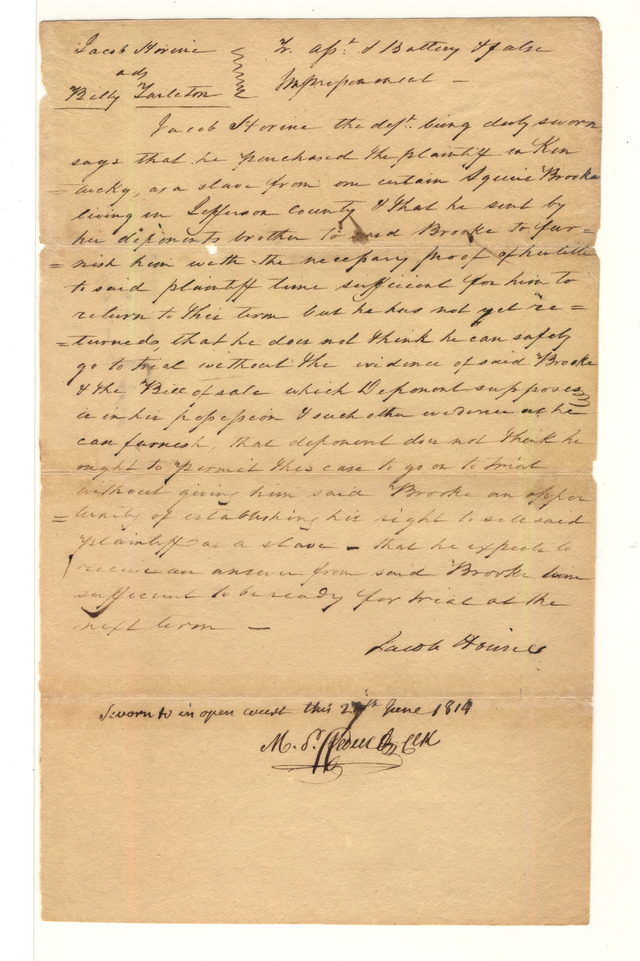 Jacob Horine
ads
Billy Tarleton
Tr. asst. & Battery & false
Imprisonment —
Jacob Horine the deft. being duly sworn
says that he purchased the plaintiff in Ken
=tucky, as a slave from one certain Squire Brooke
living in Jefferson County & that he sent by
his deponents brother to said Brooke to fur=
=nish him with the necessary proof of his title
to said plaintiff time sufficient for him to
return to this term but he has not yet re=
=turned, that he does not think he can safely
go to trial without the evidence of said Brooke
& the Bill of sale which Deponent supposes
is in his possession & such other evidence as he
can furnish, that deponent does not think he
ought to permit this case to go on to trial
without giving him said Brooke an oppor
=tunity of establishing his right to sell said
plaintiff as a slave — that he expects to
receive an answer from said Brooke time
sufficient to be ready for trial at the
next term —
Jacob Horine
Sworn to in open court this 27th June 1814
M. P. Clk